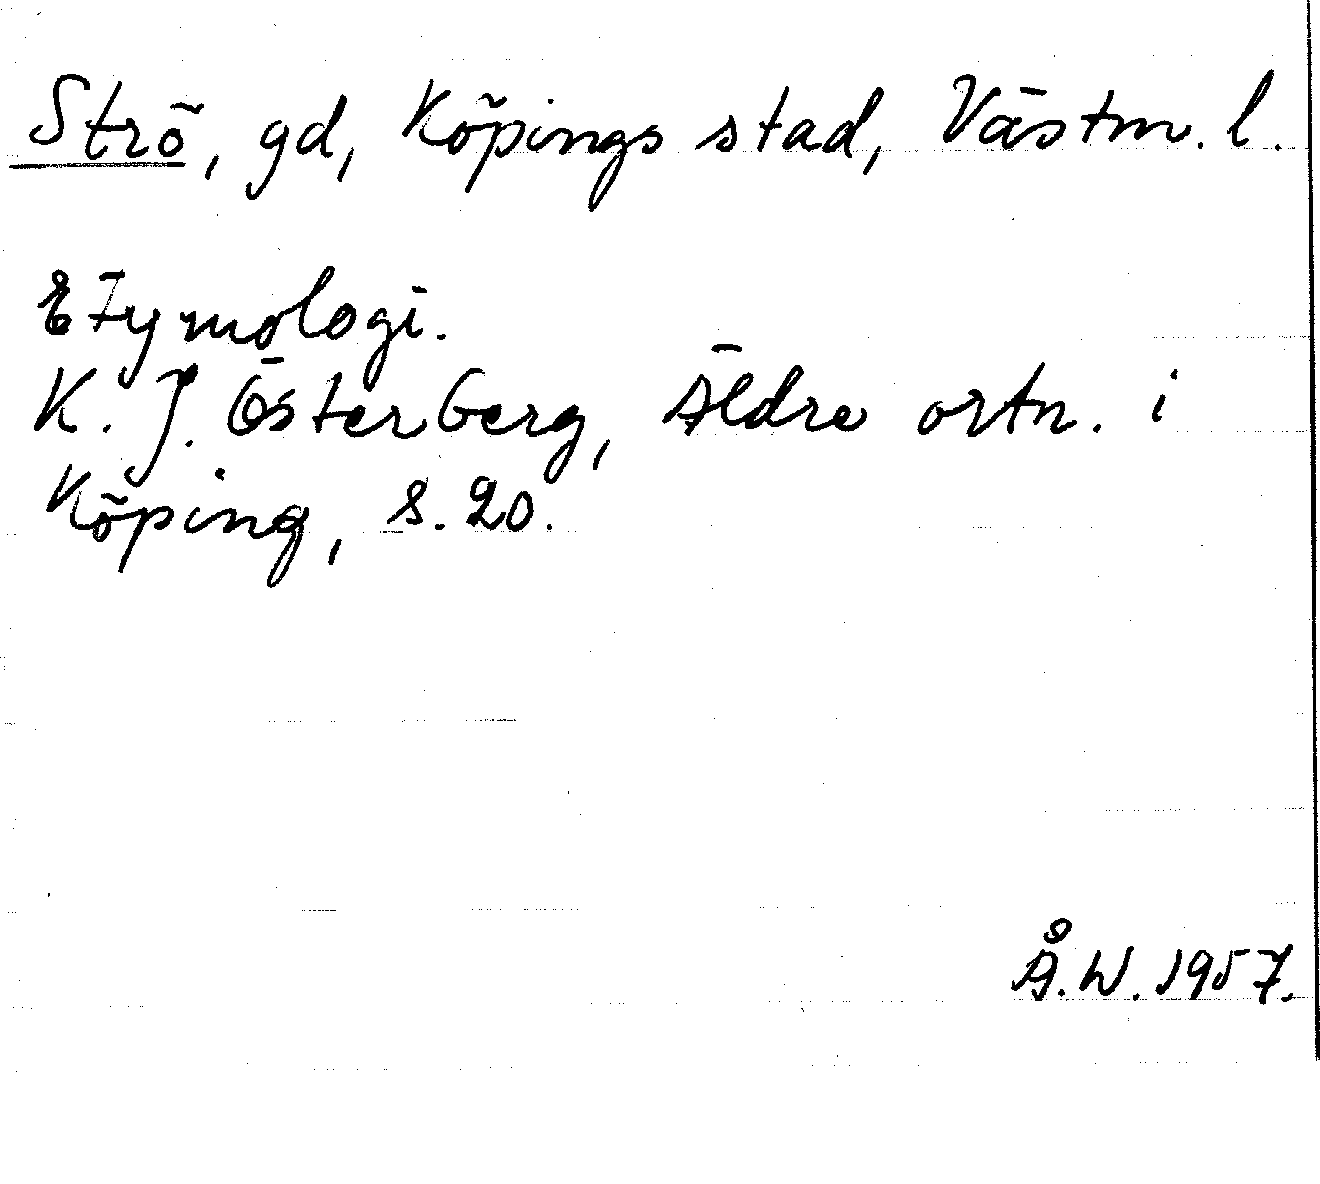 Strö, gd, Köpings stad, Västm. l.
Etymologi.
K. J. Österberg, Äldre ortn. i
Köping, s. 20.
Å. W. 1957.